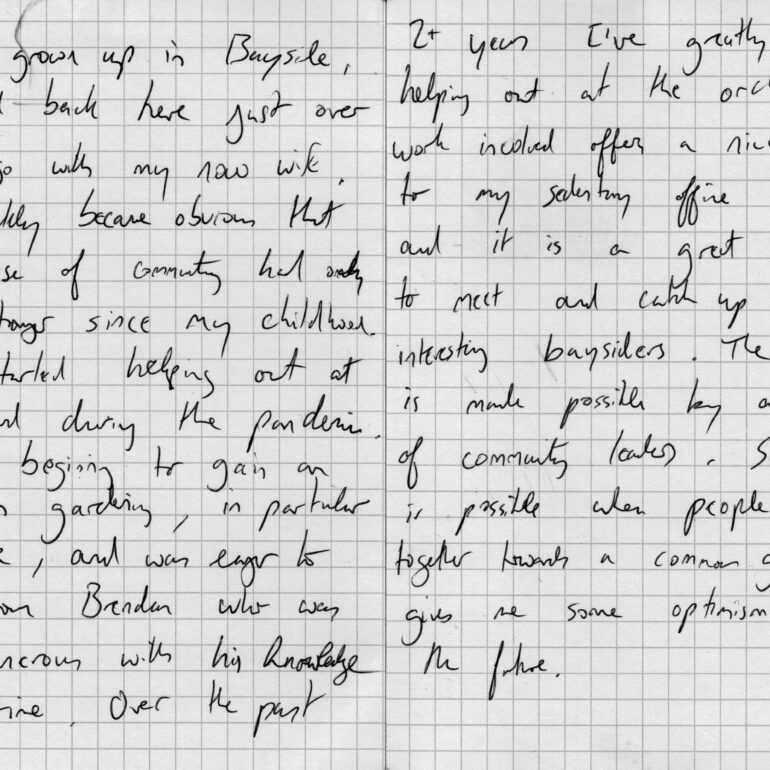 grown up in Bayside,
back here just over
with my now wife.
became obvious that
se of community had only
since my childhood.
tarted helping out at
during the pandemic.
begining to gain an
gardening, in particular
, and was eager to
Brendan who was
nerous with his knowledge
. Over the past
2+ years I've greatly
helping out at the orc
work involved offers a nic
to my sedentary office
and it is a great
to meet and catch up
interesting baysiders. The
is made possible by a
of community leaders. S
is possible when people
together towards a common g
gives me some optimism
the future.